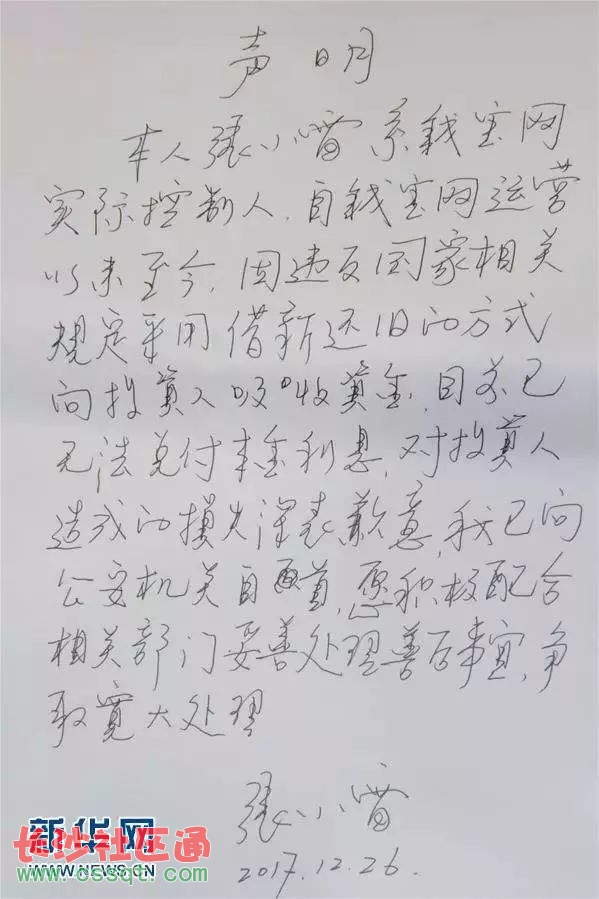 声明
本人张小雷系钱宝网
实际控制人，自钱宝网运营
以来至今，因违反国家相关
规定采用借新还旧的方式
向投资人吸收资金，目前已
无法兑付本金利息，对投资人
造成的损失深表歉意，我已向
公安机关自首，愿积极配合
相关部门妥善处理善后事宜，争
取宽大处理
张小雷
2017.12.26.
新华网
长沙社区通
WWW.NEWS.CN
www.cssqt.com